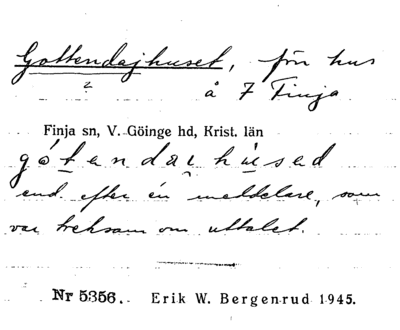 Gottendajhuset, förr hus
2
å 7 Finja
Finja sn, V. Göinge hd, Krist. län
gótendaihùsed
end. efter én meddelare, som
var tveksam om uttalet.
Nr 5356. Erik W. Bergenrud 1945.